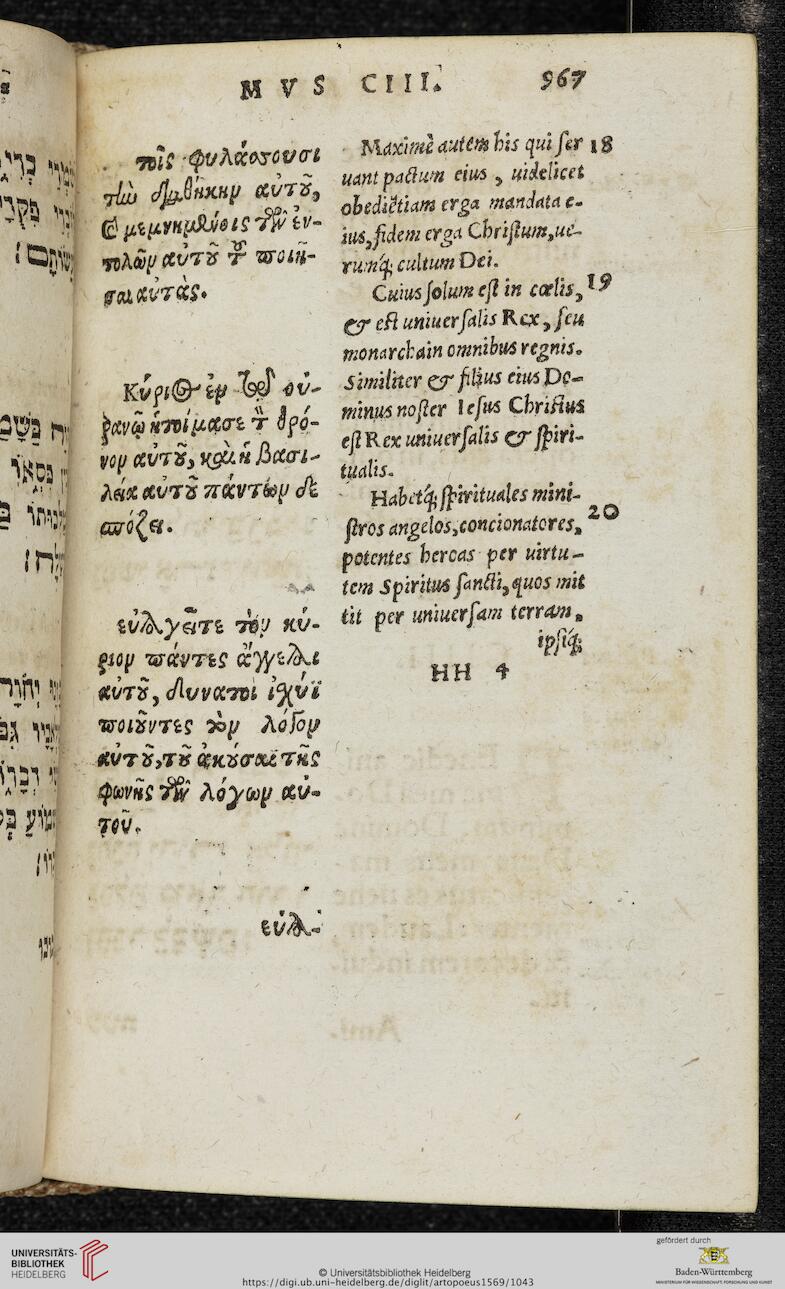 MVS CIII. 967
τοῖς φυλάσσουσι
τὴν διαθήκην αὐτοῦ,
καὶ μεμνημένοις τῶν ἐν-
τολῶν αὐτοῦ τοῦ ποιῆ-
σαι αὐτὰς.
Κύριος ἐν τῷ οὐ-
ρανῷ ἡτοίμασε τὸν θρό-
νον αὐτοῦ, καὶ ἡ βασι-
λεία αὐτοῦ πάντων δε
σπόζει.
εὐλογεῖτε τὸν κύ-
ριον πάντες ἄγγελοι
αὐτοῦ, δυνατοὶ ἰχύϊ
ποιοῦντες τὸν λόγον
αὐτοῦ, τοῦ ἀκοῦσαι τῆς
φωνῆς τῶν λόγων αὐ-
τοῦ.
εὐλο-
Maximè autem his qui ser 18
uant pactum eius, uidelicet
obediẽtiam erga mandata e-
ius, fidem erga Christum, ue-
rumq́; cultum Dei.
Cuius solum est in cœlis, 19
& est uniuersalis Rex, seu
monarcha in omnibus regnis.
Similiter & filius eius Do-
minus noster Iesus Christus
est Rex uniuersalis & spiri-
tualis.
Habetq́; spirituales mini-
stros angelos, concionatores, 20
potentes heroas per uirtu-
tem Spiritus sancti, quos mit
tit per uniuersam terram,
ipsiq́;
HH 4
UNIVERSITÄTS-
BIBLIOTHEK
HEIDELBERG
© Universitätsbibliothek Heidelberg
https://digi.ub.uni-heidelberg.de/diglit/artopoeus1569/1043
gefördert durch
Baden-Württemberg
MINISTERIUM FÜR WISSENSCHAFT, FORSCHUNG UND KUNST